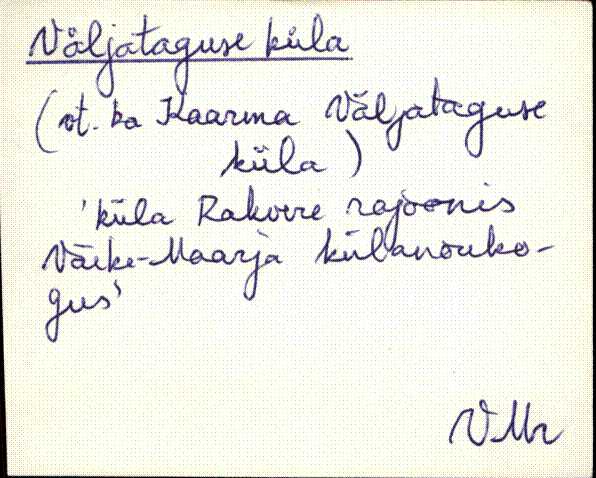 Väljataguse küla
(vt. ka Kaarma Väljataguse
küla)
'küla Rakvere rajoonis
Väike-Maarja külanõuko-
gus'
VMr